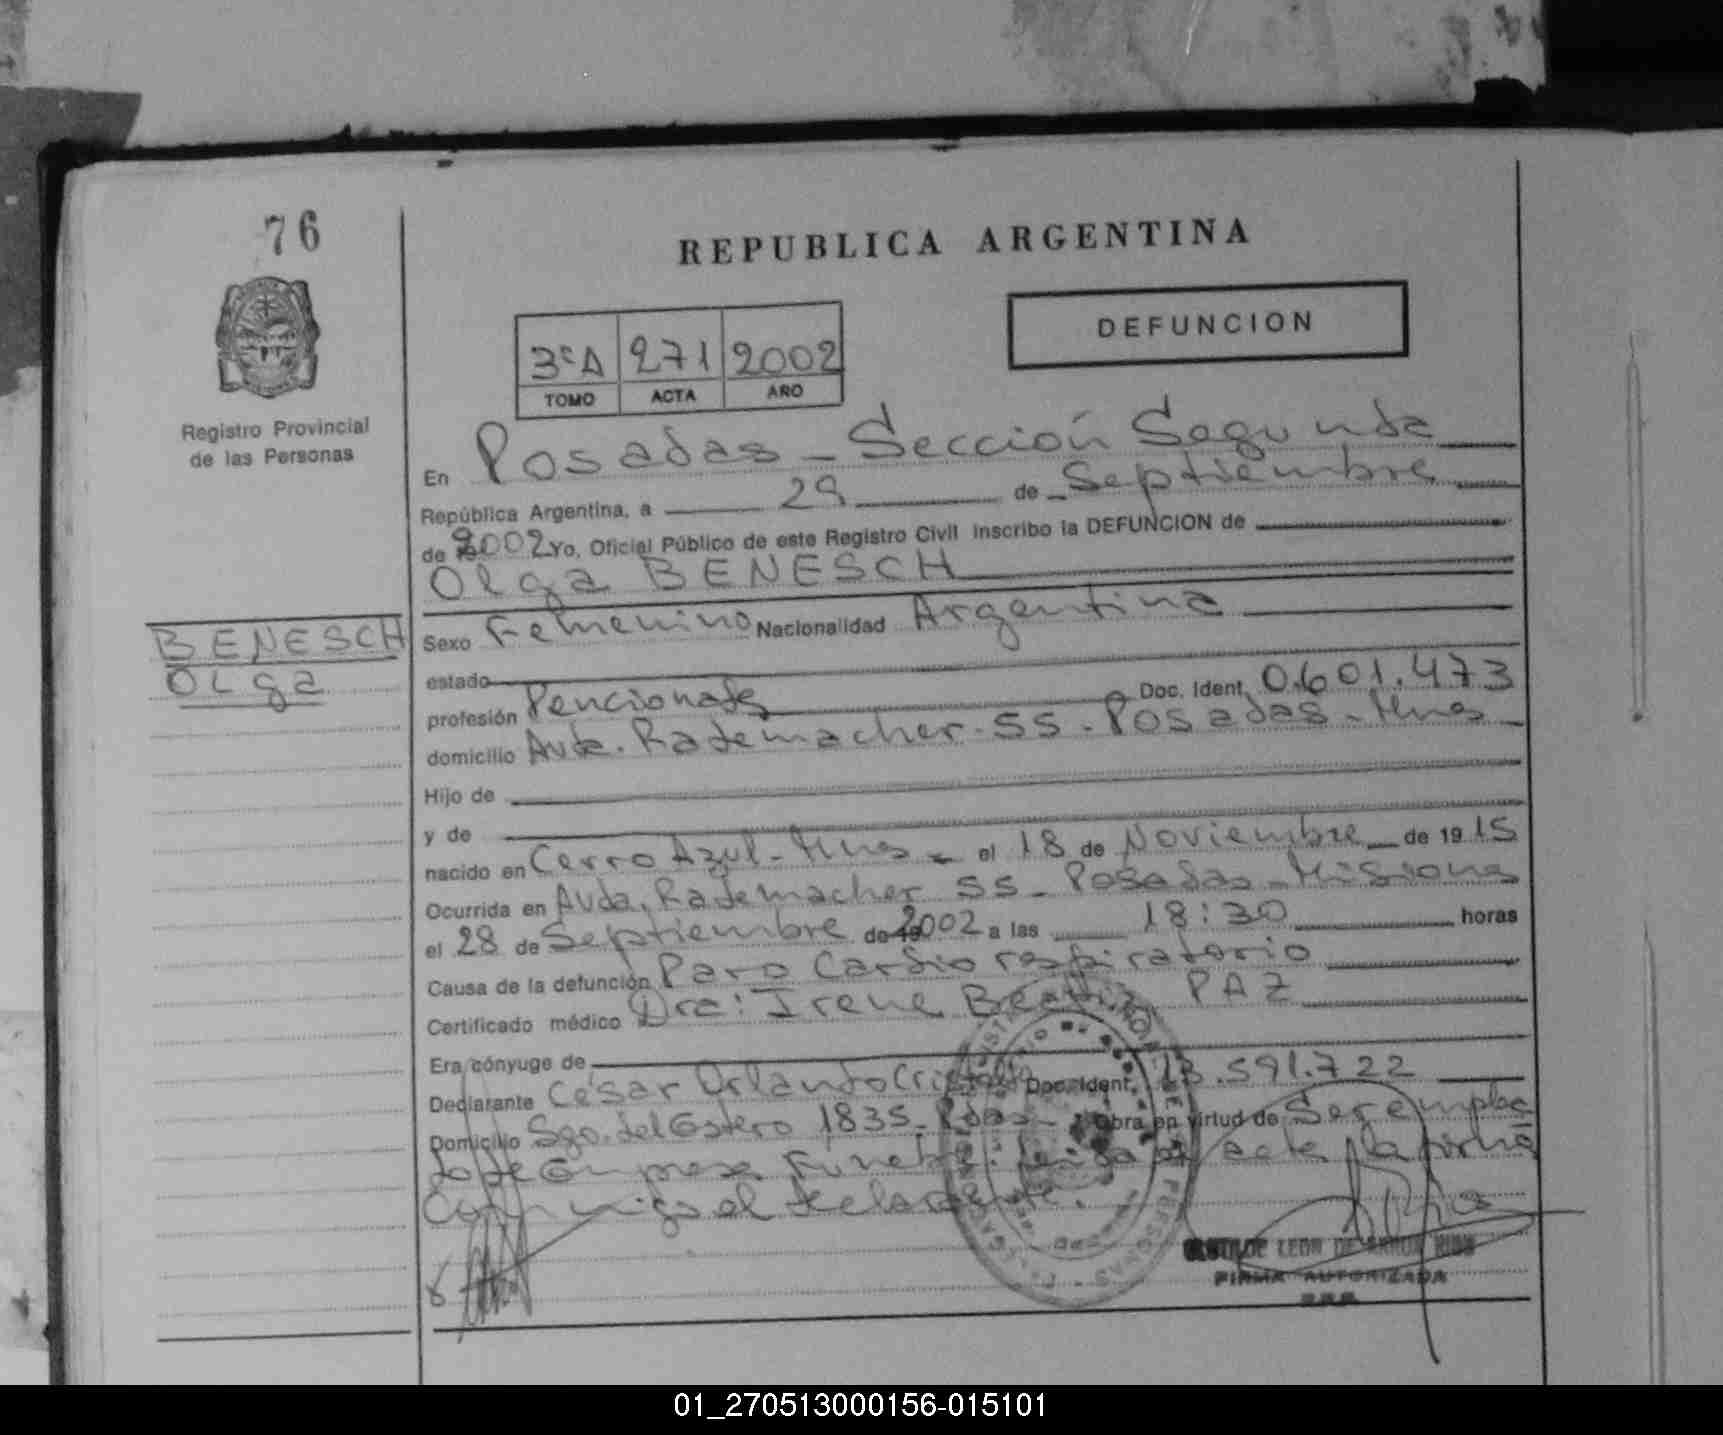 76
REPUBLICA ARGENTINA
DEFUNCION
3ºA 271 2002
TOMO ACTA AÑO
Registro Provincial
de las Personas
En Posadas - Sección Segunda
República Argentina, a 29 de Septiembre
de 2002 Yo, Oficial Público de este Registro Civil inscribo la DEFUNCION de
Olga BENESCH
BENESCH
Olga
Sexo Femenino Nacionalidad Argentina
estado
profesión Pencionada Doc. Ident. 0.601.473
domicilio Avda. Rademacher - 55 - Posadas - Mnes
Hijo de
y de
nacido en Cerro Azul - Mnes - el 18 de Noviembre de 1915
Ocurrida en Avda. Rademacher 55 - Posadas - Misiones
el 28 de Septiembre de 2002 a las 18:30 horas
Causa de la defunción Paro Cardio respiratorio
Certificado médico Dra: Irene Beatriz PAZ
Era cónyuge de
Declarante César Orlando Doc. Ident. 13.591.722
Domicilio Sgo. del Estero 1835 - Pdas - Obra en virtud de Ser emplea
do de Empresa Fúnebre. acta la firma
Conmigo el declarante.
LEON DE
FIRMA AUTORIZADA
01_270513000156-015101